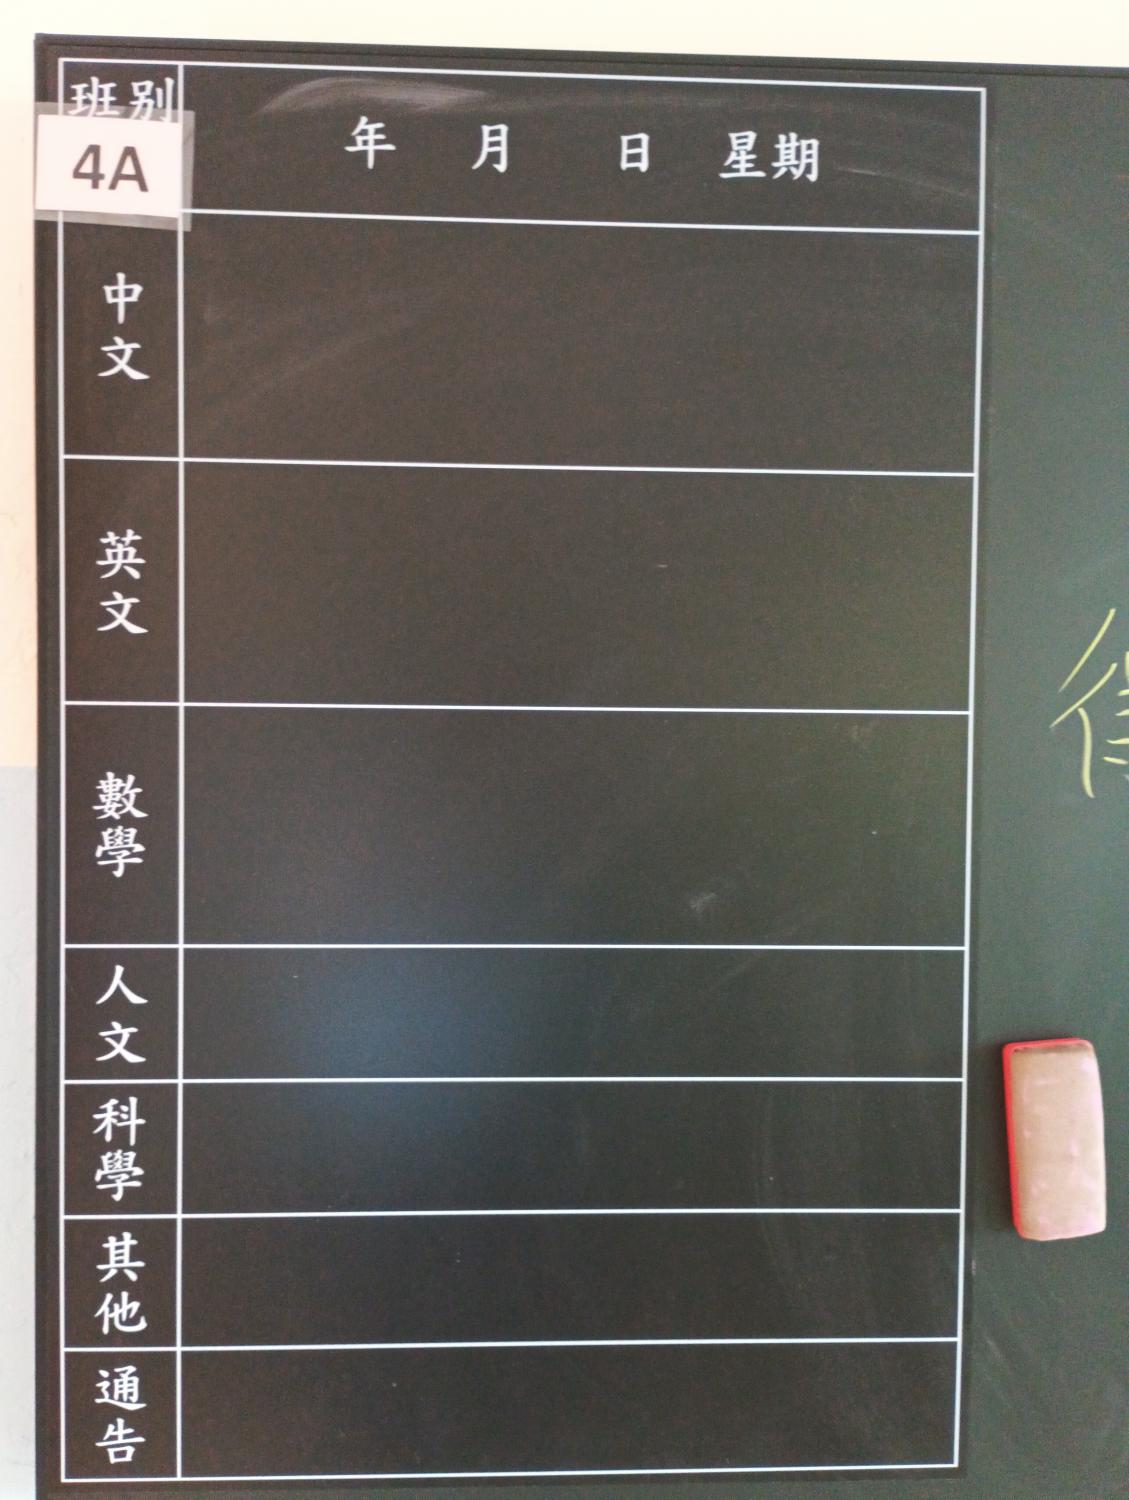 班別 年 月 日 星期
4A
中文
英文
數學
人文
科學
其他
通告